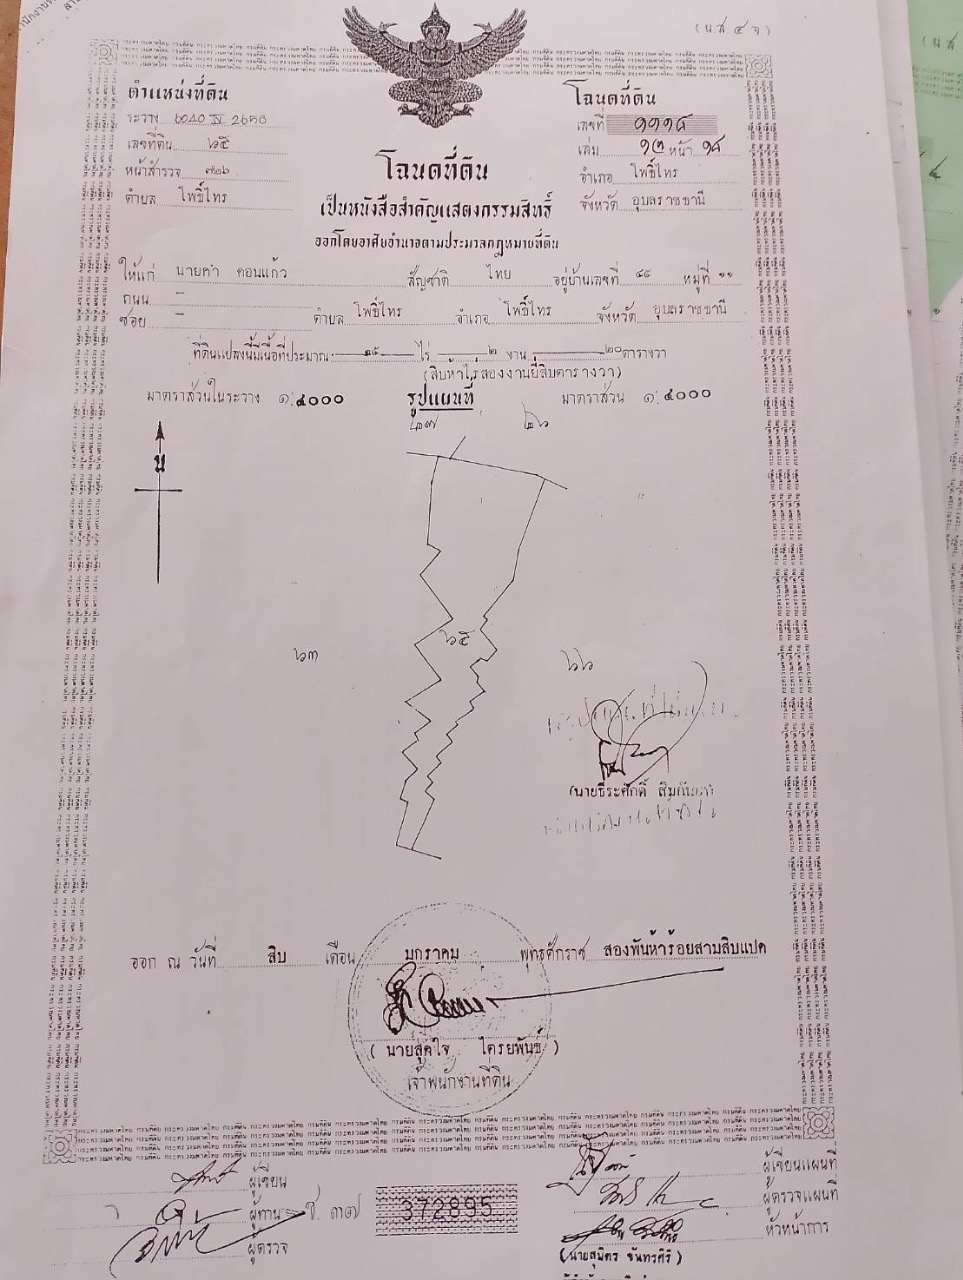 (น.ส. ๔ จ)
ตำแหน่งที่ดิน
ระวาง 6040 IV 2650
เลขที่ดิน ๖๕
หน้าสำรวจ ๗๒๖
ตำบล โพธิ์ไทร
โฉนดที่ดิน
เลขที่ ๑๑๑๘
เล่ม ๑๒ หน้า ๑๘
อำเภอ โพธิ์ไทร
จังหวัด อุบลราชธานี
โฉนดที่ดิน
เป็นหนังสือสำคัญแสดงกรรมสิทธิ์
ออกโดยอาศัยอำนาจตามประมวลกฎหมายที่ดิน
ให้แก่ นายคำ คอนแก้ว สัญชาติ ไทย อยู่บ้านเลขที่ ๔๙ หมู่ที่ ๑๑
ถนน –
ซอย – ตำบล โพธิ์ไทร อำเภอ โพธิ์ไทร จังหวัด อุบลราชธานี
ที่ดินแปลงนี้มีเนื้อที่ประมาณ ๑๕ ไร่ ๒ งาน ๒๐ ตารางวา
(สิบห้าไร่สองงานยี่สิบตารางวา)
มาตราส่วนในระวาง ๑:๔๐๐๐ รูปแผนที่ มาตราส่วน ๑:๔๐๐๐
๒๗ ๒๖
น
๖๓ ๖๕ ๖๖
ออก ณ วันที่ สิบ เดือน มกราคม พุทธศักราช สองพันห้าร้อยสามสิบแปด
(นายสุดใจ ไตรยพันธ์)
เจ้าพนักงานที่ดิน
ผู้เขียน
ผู้ทาน
ผู้ตรวจ
ช. ๓๗
372895
ผู้เขียนแผนที่
ผู้ตรวจแผนที่
หัวหน้าการ
(นายสุมิตร จันทรศิริ)